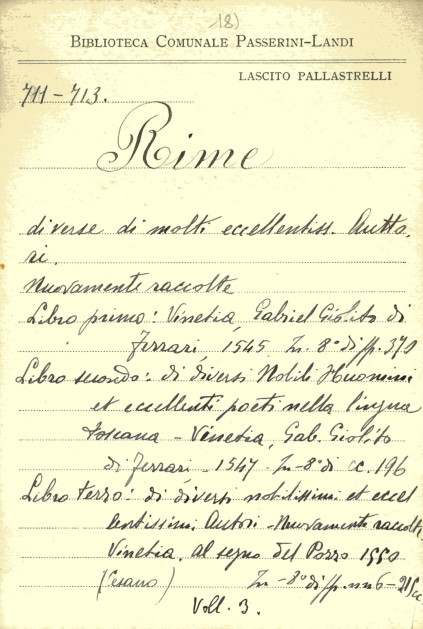 18)
BIBLIOTECA COMUNALE PASSERINI-LANDI
LASCITO PALLASTRELLI
711-713.
Rime
diverse di molti eccellentiss. Autto.
ri.
Nuovamente raccolte
Libro primo: Vinetia, Gabriel Giolito di
Ferrari, 1545 In 8° di pp. 370
Libro secondo: di diversi Nobili Huomini
et eccellenti poeti nella lingua
toscana - Vinetia, Gab. Giolito
di Ferrari - 1547 - In-8° di cc. 196
Libro terzo: di diversi nobilissimi et eccel
lentissimi Autori - Nuovamente raccolte
Vinetia. al segno del Pozzo 1550
(Cesano) In-8° di pp. nn 6 - 215 cc
Voll. 3.